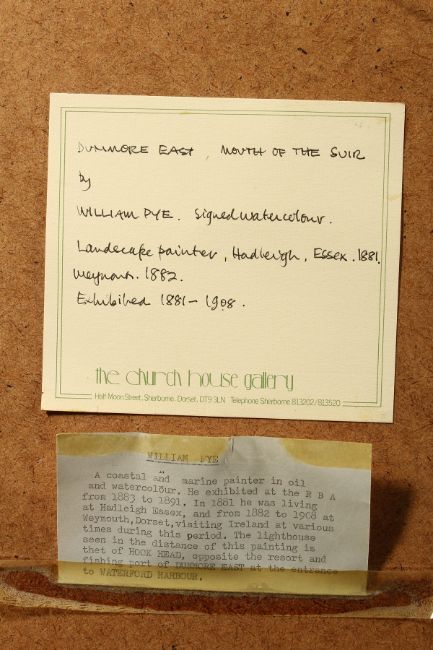 DUNMORE EAST, MOUTH OF THE SUIR
by
WILLIAM PYE. Signed watercolour.
Landscape painter, Hadleigh, Essex. 1881.
Weymouth. 1882.
Exhibited 1881-1908.
the church house gallery
Half Moon Street, Sherborne, Dorset, DT9 3LN Telephone Sherborne 813202/813520
WILLIAM PYE
A coastal and marine painter in oil
and watercolour. He exhibited at the R B A
from 1883 to 1891. In 1881 he was living
at Hadleigh Essex, and from 1882 to 1908 at
Weymouth,Dorset,visiting Ireland at various
times during this period. The lighthouse
seen in the distance of this painting is
thet of HOOK HEAD, opposite the resort and
fishing port of DUNMORE EAST at the entrance
to WATERFORD HARBOUR.